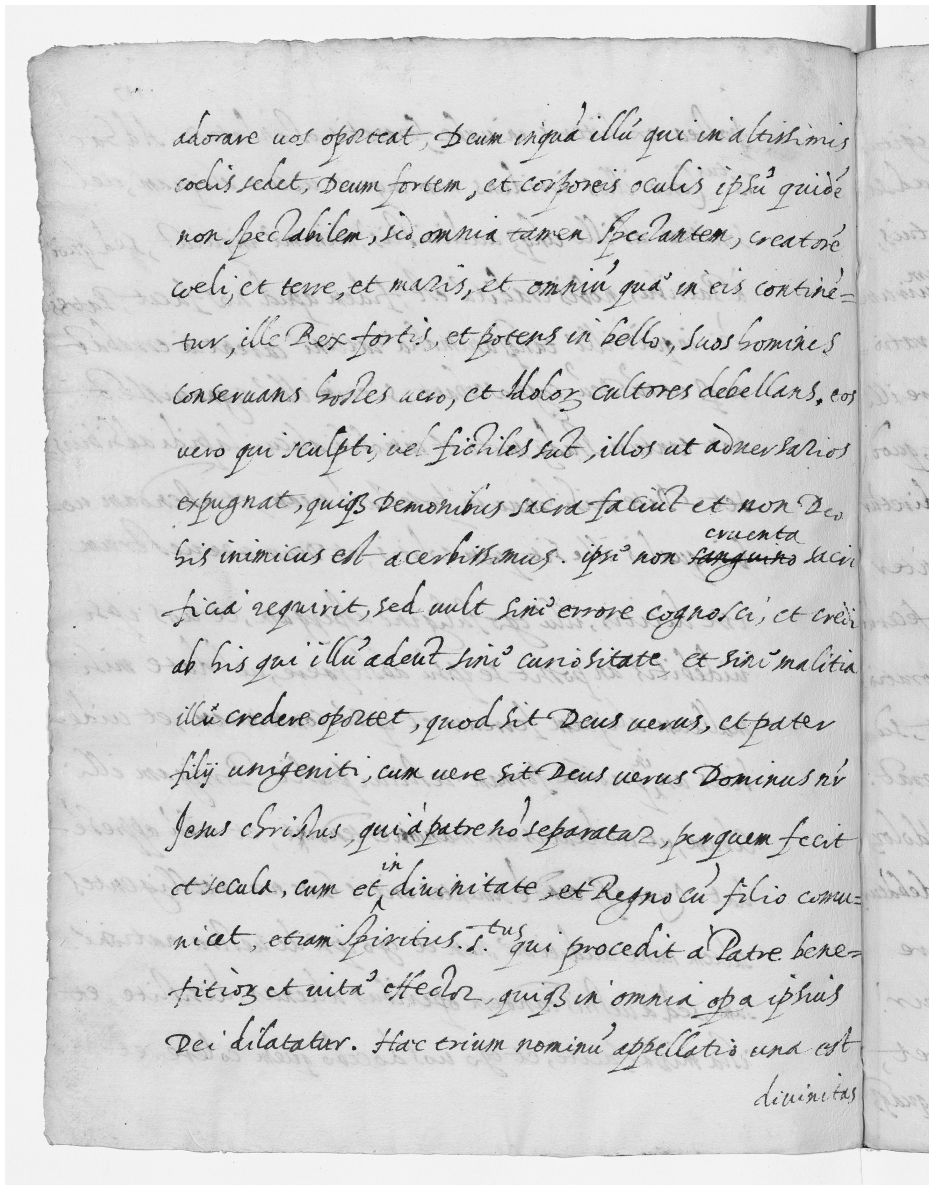 adorare uos oporteat, Deum inquà illú qui in altissimis
coelis sedet, Deum fortem, et corporeis oculis ipsú quidé
non spectabilem, sed omnia tamen spectantem, creatoré
coeli, et terre, et maris, et omniú quá in eis continé=
tur, ille Rex fortis, et potens in bello, suos homines
conseruans hostes uero, et Idoloꝝ cultores debellans, eos
vero qui sculpti, vel fictiles sút, illos ut aduersarios
expugnat, quiqȝ Demonibus sacra faciút et non Deo
his inimicus est acerbissimus. ipsé non sanguino cruenta sacri
ficia requirit, sed uult siné errore cognosci, et credi
ab his qui illú adeút siné curiositate et siné malitia
illú credere oportet, quod sit Deus uerus, et pater
filij unigeniti, cum vere sit Deus uerus Dominus nr̃
Jesus christus, qui à patre nó separatur, per quem fecit
et secula, cum et in divinitate, et Regno cú filio comu=
nicet, etiam Spiritus S.tus qui procedit à Patre bene=
fitioꝝ et uitá effector, quiqȝ in omnia opa ipsius
Dei dilatatur. Hæc trium nominú appellatio una est
divinitas